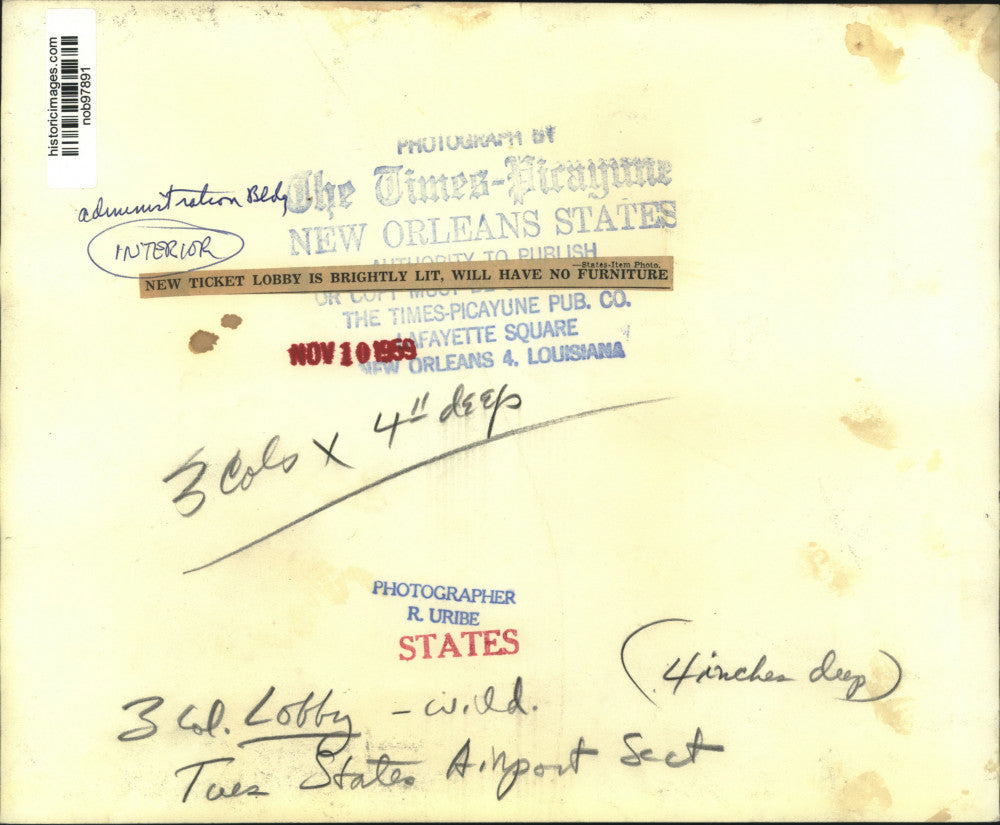 historicimages.com
nob97891
PHOTOGRAPH BY
The Times-Picayune
NEW ORLEANS STATES
AUTHORITY TO PUBLISH
administration Bldg
INTERIOR
—States-Item Photo.
NEW TICKET LOBBY IS BRIGHTLY LIT, WILL HAVE NO FURNITURE
OR COPY MUST BE
THE TIMES-PICAYUNE PUB. CO.
LAFAYETTE SQUARE
NEW ORLEANS 4, LOUISIANA
NOV 10 1959
3 Cols x 4" deep
PHOTOGRAPHER
R. URIBE
STATES
(4 inches deep)
3 col. Lobby -
Tues States Airport Sect